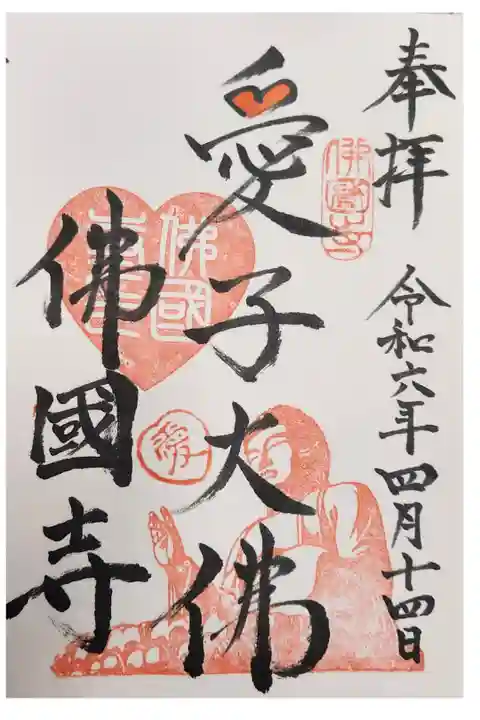 奉拝
令和六年四月十四日
佛國寺
愛子大佛
佛國寺